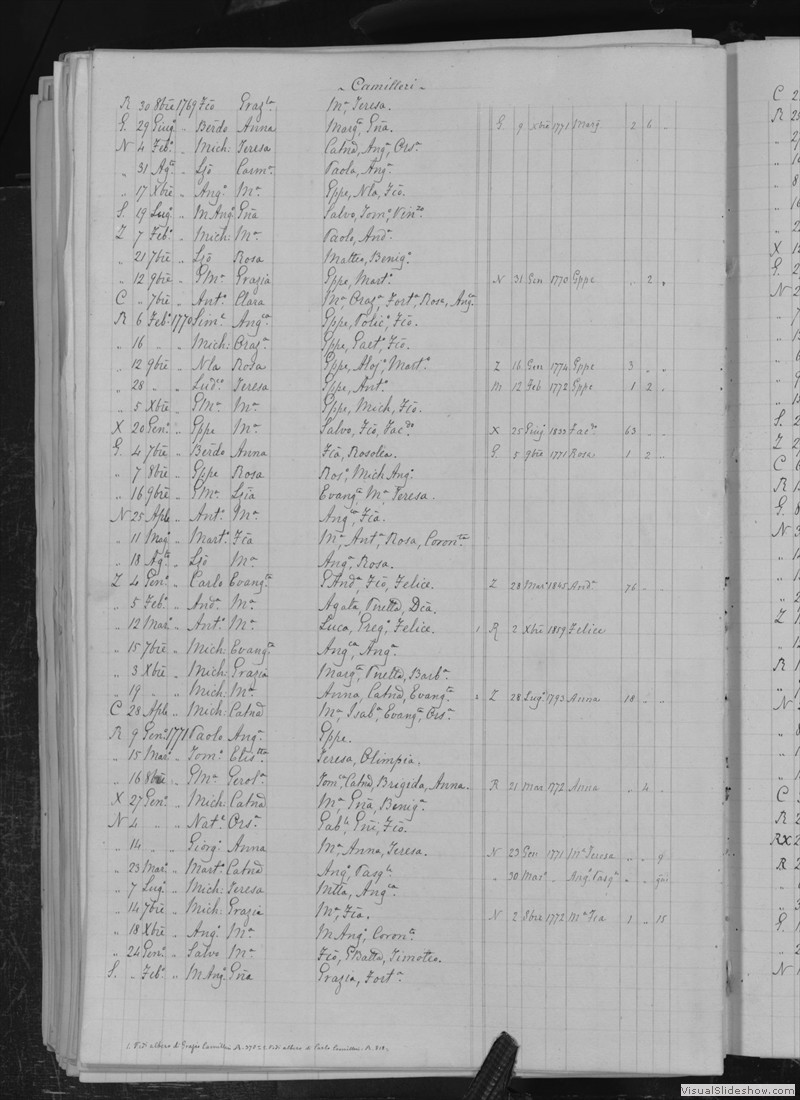 - Camilleri -
R 30 8bre 1769 Fco Grazla Ma, Teresa.
G. 29 Giugo " Berdo Anna Marga, Gna. G 9 Xbre 1771 Marga 2 6 "
N 4 Febo " Mich: Teresa Catna, Anga, Orsa.
" 31 Ago " Ljo Carma. Paola, Anga.
" 17 8bre " Ango Ma. Gppe, Nla, Fco.
S. 19 Lugo " M Ango Gna Salvo, Tomo, Vinzo
Z 7 Febo " Mich: Ma. Paolo, Anda.
" 21 7bre " Ljo Rosa Matteo, Benigo.
" 12 9bre " GMa Grazia Gppe, Marto. N 31 Gen 1770 Gppe " 2 "
C " 7bre " Anto Clara Ma, Oraza, Forta, Rosa, Angca.
R 6 Febo 1770 Simo Angca Gppe, Polica, Fco.
" 16 " " Mich: Oraza Gppe, Gaeto, Fco.
" 12 9bre " Nla Rosa Gppe, Alojo, Marto. Z 16 Gen 1774 Gppe 3 " "
" 28 " " Ludo. Teresa Gppe, Anto. M 12 Feb 1772 Gppe 1 2 "
" 5 Xbre " GMa Ma. Gppe, Mich, Fco.
X 20 Geno " Gppe Ma. Salvo, Fco, Pacdo X 25 Giug 1833 Pacdo 63 " "
G. 4 7bre " Berdo Anna Fca, Rosolea. G. 5 9bre 1771 Rosa 1 2 "
" 7 8bre " Gppe Rosa Roso, Mich Ango.
" 16 9bre " GMa Ljia Evanga, Ma, Teresa.
N 25 Aple " Anto Ma. Angca, Fca.
" 11 Mago " Marto Fca Ma, Anta, Rosa, Coronta
" 18 Agto " Ljo Ma. Anga, Rosa.
Z 4 Geno " Carlo Evangta GAnda, Fco, Felice. Z 28 Mar 1845 Anda 76 " "
" 5 Febo " Anda Ma. Agata, Piretta, Dca.
" 12 Maro " Anto Ma. Luca, Grego, Felice. 1 R 2 Xbre 1859 Felice
" 15 7bre " Mich: Evangta Angca, Anga.
" 3 Xbre " Mich: Grazia Marga, Piretta, Barba.
" 19 " " Mich: Ma. Anna, Catna, Evanga. 2 Z 28 Lugo 1793 Anna 18 " "
C 28 Aple " Mich: Catna Ma, Isaba, Evanga, Orsa.
R 9 Geno 1771 Paolo Anga. Gppe.
" 15 Maro " Tomo Elistta Teresa, Olimpia.
" 16 8bre " GMa Gerola Toma, Catna, Brigida, Anna. R 21 Mar 1772 Anna " 4 "
X 27 Geno " Mich: Catna Ma, Gna, Beniga.
N 4 " " Nato Orsa. Gabla, Gni, Fco.
" 14 " " Giorgo Anna Ma, Anna, Teresa. N 23 Gen 1771 Ma Teresa " " 9
" 23 Maro " Marto Catna Ango, Pasqo. " 30 Maro " Ango Pasqo " "
" 7 Lugo " Mich: Teresa Mtta, Angca.
" 14 7bre " Mich: Grazia Ma, Fca. N 2 8bre 1772 Ma Fca 1 " 15
" 18 Xbre " Ango Ma. M Ango, Corona.
" 24 Geno " Salvo Ma. Fco, GBatta, Timoteo.
S. " Febo " M Ango Gna Grazia, Forta.
1. Vedi albero di Grazio Camilleri R. 2. Vedi albero di Carlo Camilleri R.
C
R
X
G
N
R
S
Z
C
R
G.
N
Z
R
N
C
R
RX
R
G
N
VisualSlideshow.com